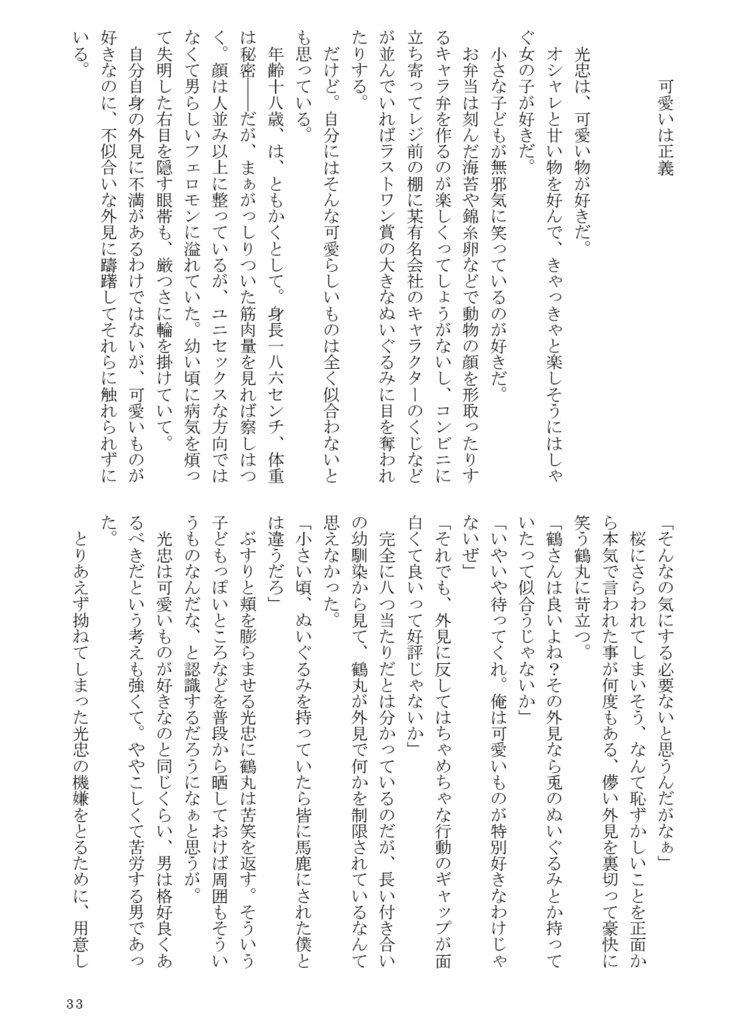 可愛いは正義
光忠は、可愛い物が好きだ。
オシャレと甘い物を好んで、きゃっきゃと楽しそうにはしゃ
ぐ女の子が好きだ。
小さな子どもが無邪気に笑っているのが好きだ。
お弁当は刻んだ海苔や錦糸卵などで動物の顔を形取ったりす
るキャラ弁を作るのが楽しくってしょうがないし、コンビニに
立ち寄ってレジ前の棚に某有名会社のキャラクターのくじなど
が並んでいればラストワン賞の大きなぬいぐるみに目を奪われ
たりする。
だけど。自分にはそんな可愛らしいものは全く似合わないと
も思っている。
年齢十八歳、は、ともかくとして。身長一八六センチ、体重
は秘密――だが、まぁがっしりついた筋肉量を見れば察しはつ
く。顔は人並み以上に整っているが、ユニセックスな方向では
なくて男らしいフェロモンに溢れていた。幼い頃に病気を煩っ
て失明した右目を隠す眼帯も、厳つさに輪を掛けていて。
自分自身の外見に不満があるわけではないが、可愛いものが
好きなのに、不似合いな外見に躊躇してそれらに触れられずに
いる。
「そんなの気にする必要ないと思うんだがなぁ」
桜にさらわれてしまいそう、なんて恥ずかしいことを正面か
ら本気で言われた事が何度もある、儚い外見を裏切って豪快に
笑う鶴丸に苛立つ。
「鶴さんは良いよね？その外見なら兎のぬいぐるみとか持って
いたって似合うじゃないか」
「いやいや待ってくれ。俺は可愛いものが特別好きなわけじゃ
ないぜ」
「それでも、外見に反してはちゃめちゃな行動のギャップが面
白くて良いって好評じゃないか」
完全に八つ当たりだとは分かっているのだが、長い付き合い
の幼馴染から見て、鶴丸が外見で何かを制限されているなんて
思えなかった。
「小さい頃、ぬいぐるみを持っていたら皆に馬鹿にされた僕と
は違うだろ」
ぶすりと頬を膨らませる光忠に鶴丸は苦笑を返す。そういう
子どもっぽいところなどを普段から晒しておけば周囲もそうい
うものなんだな、と認識するだろうになぁと思うが。
光忠は可愛いものが好きなのと同じくらい、男は格好良くあ
るべきだという考えも強くて。ややこしくて苦労する男であっ
た。
とりあえず拗ねてしまった光忠の機嫌をとるために、用意し
33